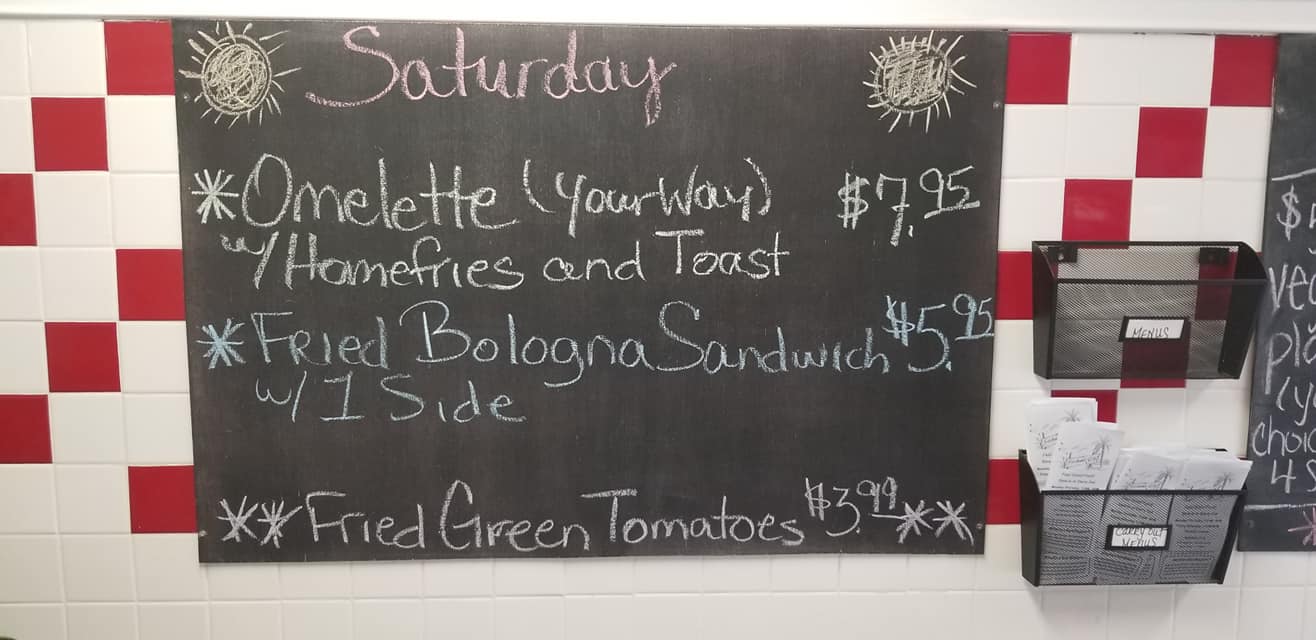 Saturday
*Omelette (your Way) $7.95
w/ Homefries and Toast
*Fried Bologna Sandwich $5.95
w/ 1 Side
**Fried Green Tomatoes $3.99**
MENUS
CARRY OUT
MENUS
$